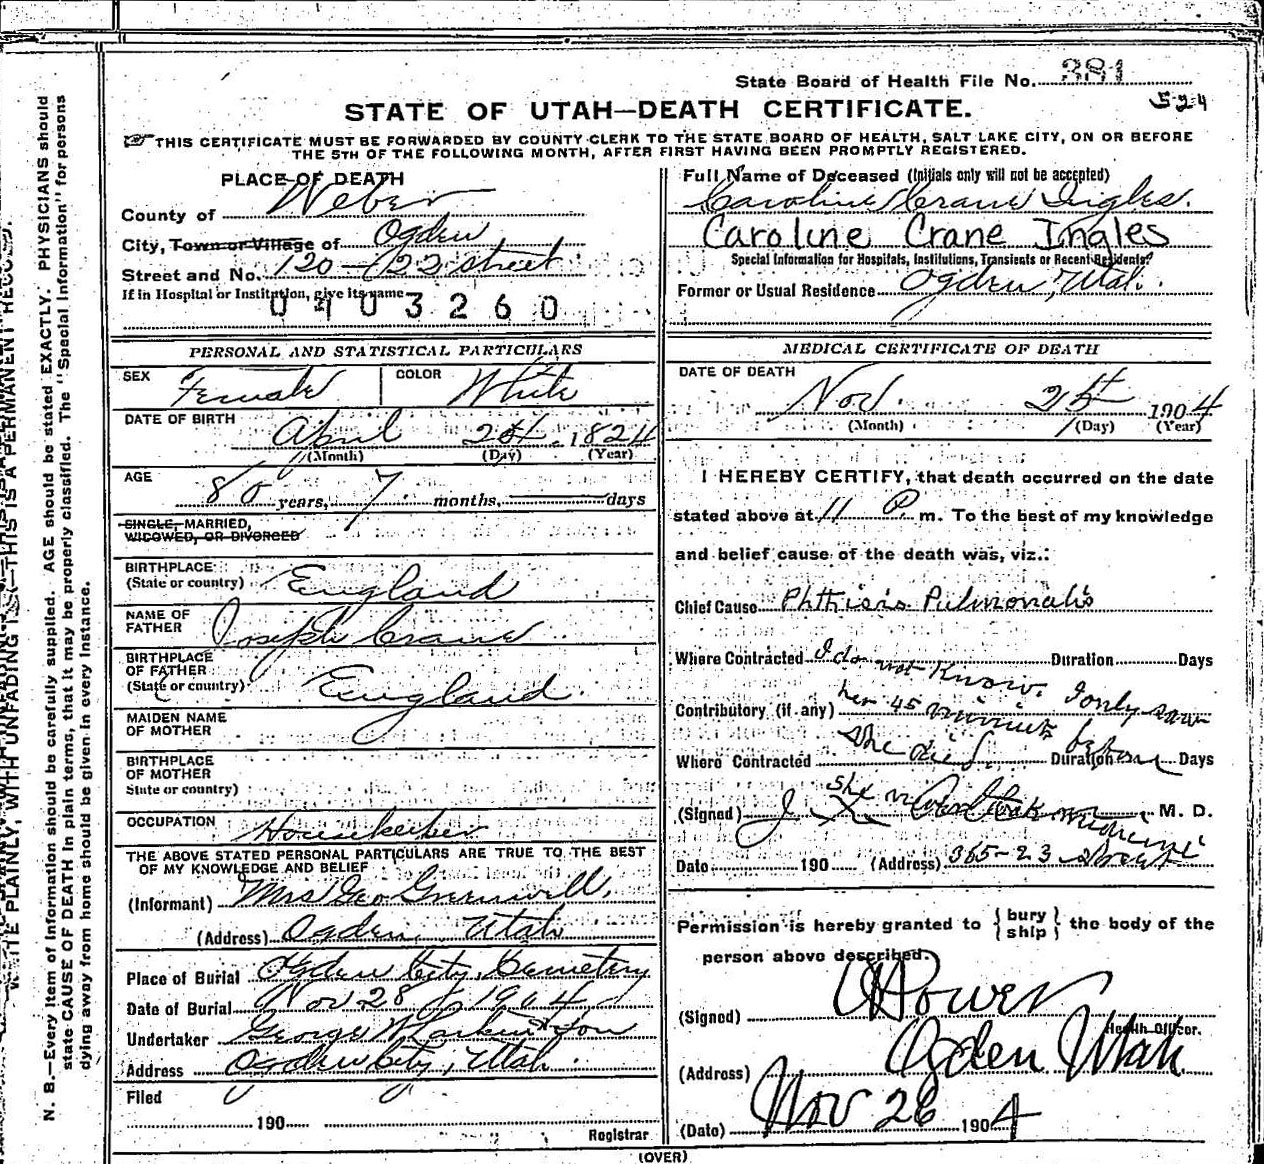 State Board of Health File No. 381
524
STATE OF UTAH—DEATH CERTIFICATE.
THIS CERTIFICATE MUST BE FORWARDED BY COUNTY CLERK TO THE STATE BOARD OF HEALTH, SALT LAKE CITY, ON OR BEFORE
THE 5TH OF THE FOLLOWING MONTH, AFTER FIRST HAVING BEEN PROMPTLY REGISTERED.
PLACE OF DEATH
County of Weber
City, Town or Village of Ogden
Street and No. 120 - 22 street
If in Hospital or Institution, give its name
0403260
Full Name of Deceased (Initials only will not be accepted)
Caroline Crane Ingles.
Caroline Crane Ingles
Special Information for Hospitals, Institutions, Transients or Recent Residents.
Former or Usual Residence Ogden, Utah.
PERSONAL AND STATISTICAL PARTICULARS
SEX Female COLOR White
DATE OF BIRTH April 1824
(Month) (Day) (Year)
AGE 80 years, 7 months, days
SINGLE, MARRIED,
WIDOWED, OR DIVORCED
BIRTHPLACE
(State or country) England
NAME OF
FATHER Joseph Crane
BIRTHPLACE
OF FATHER
(State or country) England
MAIDEN NAME
OF MOTHER
BIRTHPLACE
OF MOTHER
State or country)
OCCUPATION Housekeeper
THE ABOVE STATED PERSONAL PARTICULARS ARE TRUE TO THE BEST
OF MY KNOWLEDGE AND BELIEF
(Informant) Mrs Geo Greenwell.
(Address) Ogden, Utah
Place of Burial Ogden City, Cemetery
Date of Burial Nov 28 1904
Undertaker George W Larkin & Son
Address Ogden City, Utah.
Filed
190
Registrar
MEDICAL CERTIFICATE OF DEATH
DATE OF DEATH
Nov. 25th 1904
(Month) (Day) (Year)
I HEREBY CERTIFY, that death occurred on the date
stated above at 11 P. m. To the best of my knowledge
and belief cause of the death was, viz.:
Chief Cause Phthisis Pulmonalis
Where Contracted I do not know. I only saw Duration Days
Contributory (if any) her 45 minutes before
Where Contracted she died. Duration Days
she medicine
(Signed) M. D.
Date 190 (Address) 365-23 street
Permission is hereby granted to {bury ship} the body of the
person above described.
(Signed) Power
Health Officer.
(Address) Ogden Utah
(Date) Nov 26 1904
(OVER)
N. B.—Every item of information should be carefully supplied. AGE should be stated EXACTLY. PHYSICIANS should
state CAUSE OF DEATH in plain terms, that it may be properly classified. The "Special Information" for persons
dying away from home should be given in every instance.
WRITE PLAINLY, WITH UNFADING INK—THIS IS A PERMANENT RECORD.